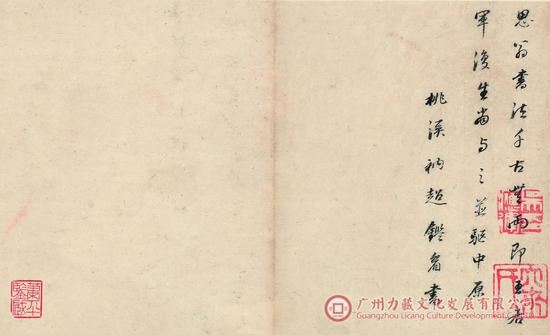 思翁書法千古無兩即王右
軍復生當與之並驅中原
桃溪衲超鑑者書
广州力藏文化发展有限公司
Guangzhou Licang Culture Development Co.,Ltd